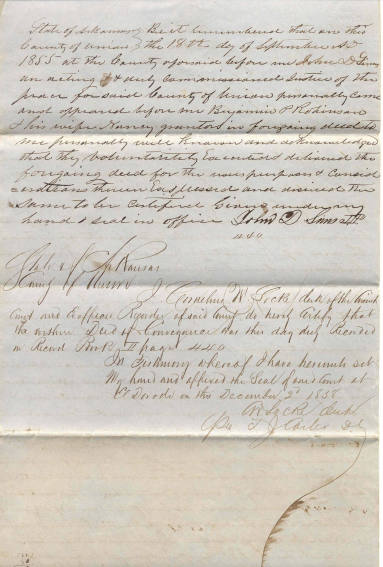 State of Arkansas Be it remembered that on this
County of Union the 18th day of September AD
1855 at the County aforsaid before me John D
an acting & duly Commissioned Justice of the
peace for said County of Union personally came
and appeared before me Benjamin P Robinson
& his wife Nancy grantors in forgoing deed to
me personally well Known and acknowledged
that they Voluntarily Executed & delivered the
forgoing deed for the uses purposes & Consid
erations therein Expressed and desired the
Same to be Certified Given under my
hand & seal in office John D
440
State of Arkansas
County of Union
I Cornelius W Locke clerk of the Circuit
Court and Exofficio Recorder of said County do hereby Certify that
the within Deed of Conveyance was this day duly Recorded
in Record Book page 440
In Testimony whereof I have hereunto set
My hand and affixed the Seal of our Court at
El Dorado on this December 2d 1858
Locke Clerk